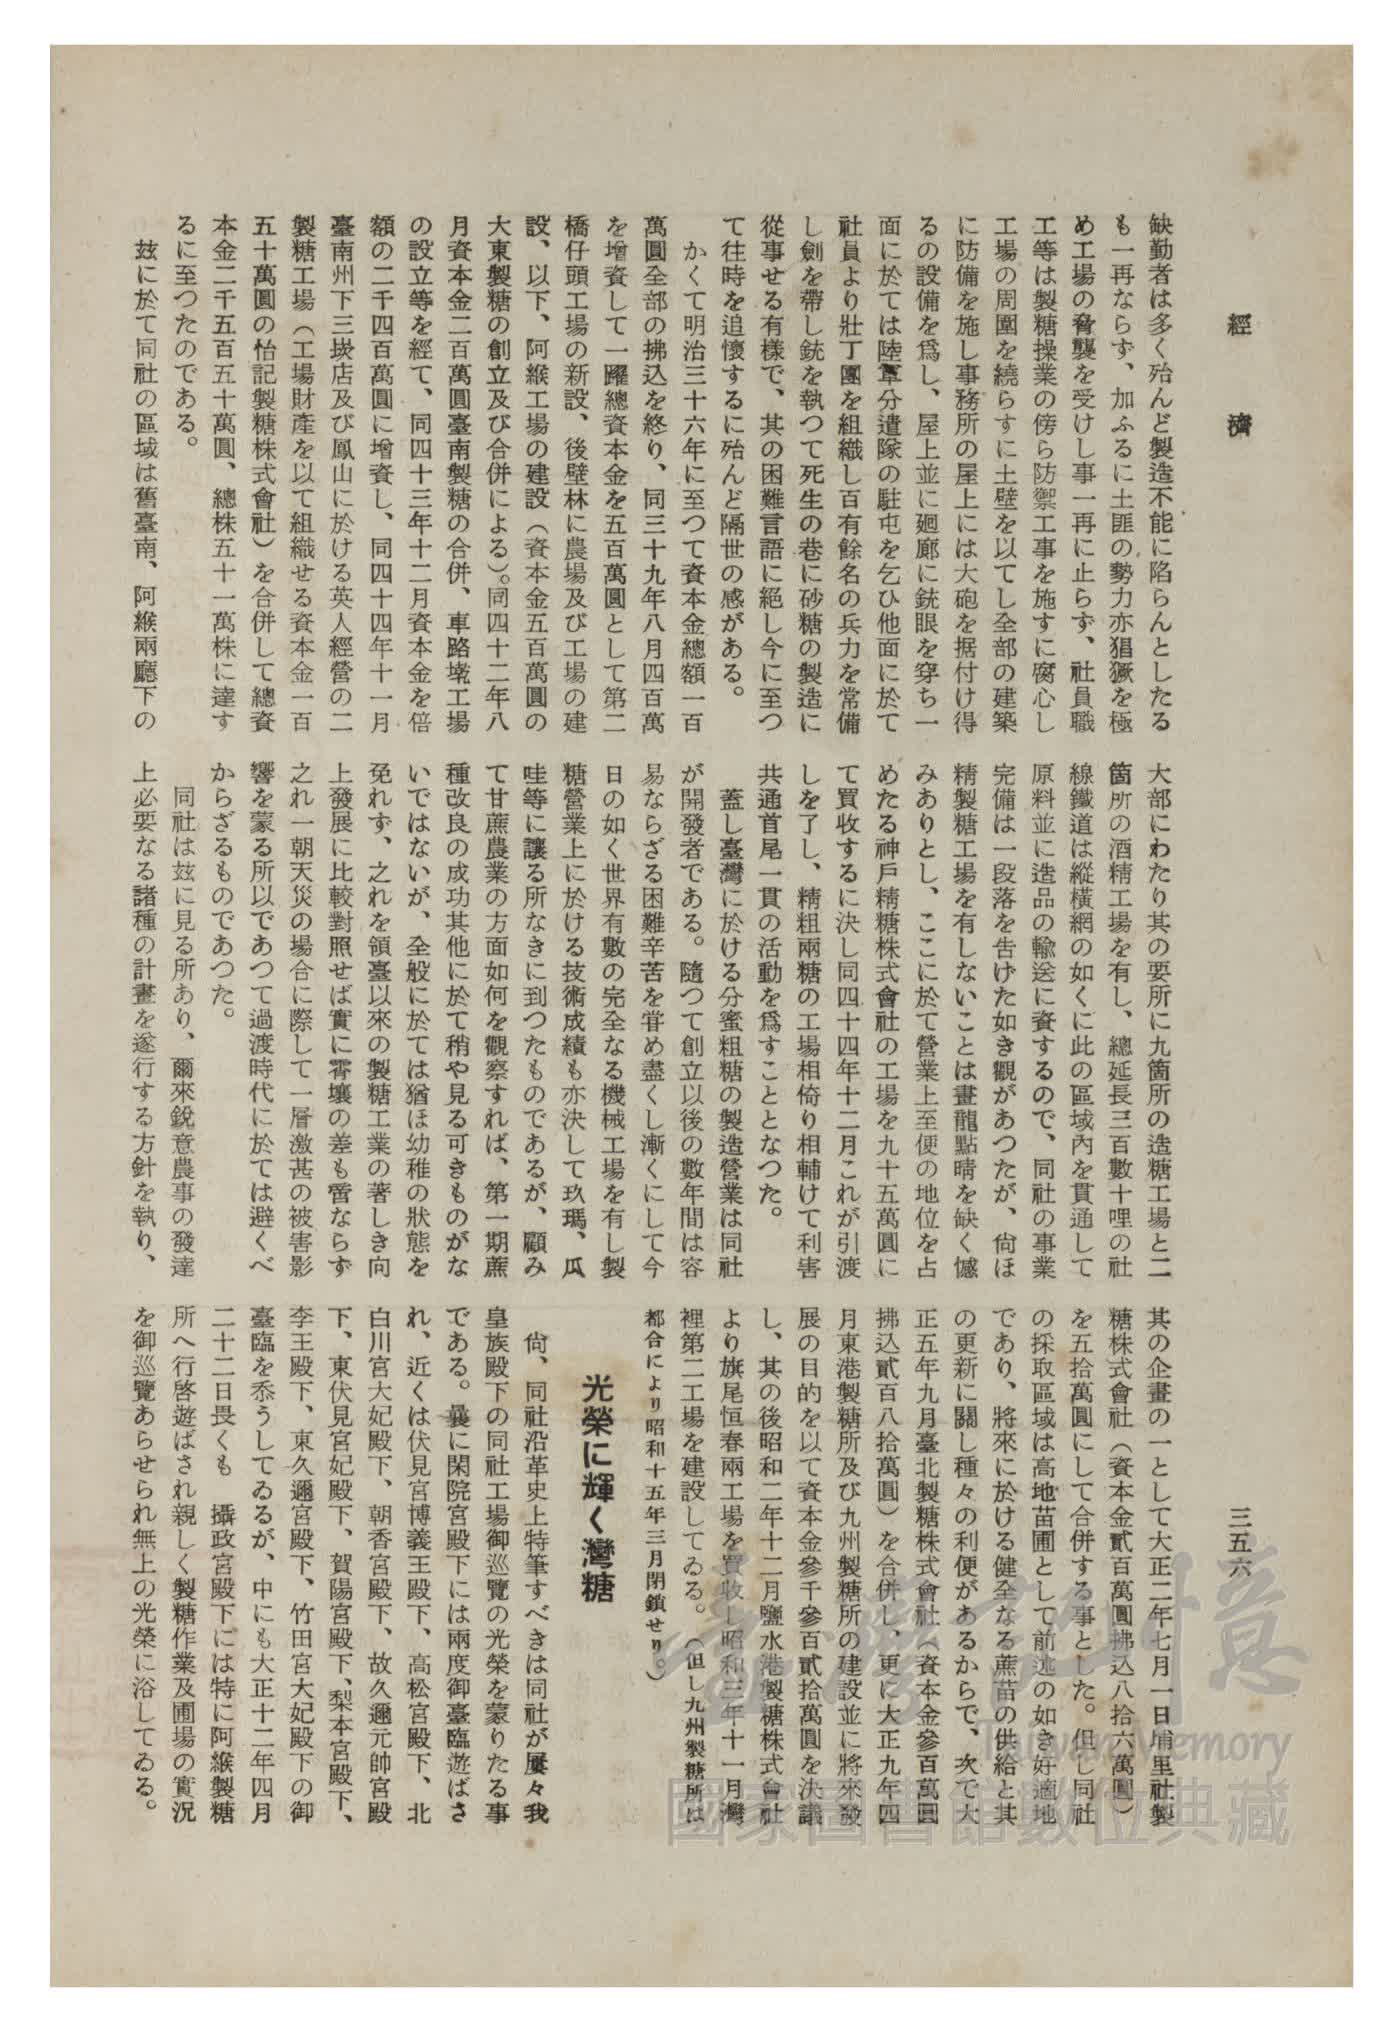 經濟
三五六
缺勤者は多く殆んど製造不能に陷らんとしたる
も一再ならず、加ふるに土匪の勢力亦猖獗を極
め工場の脅襲を受けし事一再に止らず、社員職
工等は製糖操業の傍ら防禦工事を施すに腐心し
工場の周圍を繞らすに土壁を以てし全部の建築
に防備を施し事務所の屋上には大砲を据付け得
るの設備を爲し、屋上並に廻廊に銃眼を穿ち一
面に於ては陸軍分遣隊の駐屯を乞ひ他面に於て
社員より壯丁團を組織し百有餘名の兵力を常備
し劍を帶し銃を執つて死生の巷に砂糖の製造に
從事せる有樣で、其の困難言語に絕し今に至つ
て往時を追懷するに殆んど隔世の感がある。
かくて明治三十六年に至つて資本金總額一百
萬圓全部の拂込を終り、同三十九年八月四百萬
を增資して一躍總資本金を五百萬圓として第二
橋仔頭工場の新設、後壁林に農場及び工場の建
設、以下、阿緱工場の建設（資本金五百萬圓の
大東製糖の創立及び合併による）。同四十二年八
月資本金二百萬圓臺南製糖の合併、車路墘工場
の設立等を經て、同四十三年十二月資本金を倍
額の二千四百萬圓に增資し、同四十四年十一月
臺南州下三崁店及び鳳山に於ける英人經營の二
製糖工場（工場財產を以て組織せる資本金一百
五十萬圓の怡記製糖株式會社）を合併して總資
本金二千五百五十萬圓、總株五十一萬株に達す
るに至つたのである。
玆に於て同社の區域は舊臺南、阿緱兩廳下の
大部にわたり其の要所に九箇所の造糖工場と二
箇所の酒精工場を有し、總延長三百數十哩の社
線鐵道は縱橫網の如くに此の區域內を貫通して
原料並に造品の輸送に資するので、同社の事業
完備は一段落を告げた如き觀があつたが、尙ほ
精製糖工場を有しないことは畫龍點睛を缺く憾
みありとし、ここに於て營業上至便の地位を占
めたる神戶精糖株式會社の工場を九十五萬圓に
て買收するに決し同四十四年十二月これが引渡
しを了し、精粗兩糖の工場相倚り相輔けて利害
共通首尾一貫の活動を爲すこととなつた。
蓋し臺灣に於ける分蜜粗糖の製造營業は同社
が開發者である。隨つて創立以後の數年間は容
易ならざる困難辛苦を甞め盡くし漸くにして今
日の如く世界有數の完全なる機械工場を有し製
糖營業上に於ける技術成績も亦決して玖瑪、瓜
哇等に讓る所なきに到つたものであるが、顧み
て甘蔗農業の方面如何を觀察すれば、第一期蔗
種改良の成功其他に於て稍や見る可きものがな
いではないが、全般に於ては猶ほ幼稚の狀態を
免れず、之れを領臺以來の製糖工業の著しき向
上發展に比較對照せば實に霄壤の差も啻ならず
之れ一朝天災の場合に際して一層激甚の被害影
響を蒙る所以であつて過渡時代に於ては避くべ
からざるものであつた。
同社は玆に見る所あり、爾來銳意農事の發達
上必要なる諸種の計畫を遂行する方針を執り、
其の企畫の一として大正二年七月一日埔里社製
糖株式會社（資本金貳百萬圓拂込八拾六萬圓）
を五拾萬圓にして合併する事とした。但し同社
の採取區域は高地苗圃として前述の如き好適地
であり、將來に於ける健全なる蔗苗の供給と其
の更新に關し種々の利便があるからで、次で大
正五年九月臺北製糖株式會社（資本金參百萬圓
拂込貳百八拾萬圓）を合併し、更に大正九年四
月東港製糖所及び九州製糖所の建設並に將來發
展の目的を以て資本金參千參百貳拾萬圓を決議
し、其の後昭和二年十二月鹽水港製糖株式會社
より旗尾恒春兩工場を買收し昭和三年十一月灣
裡第二工場を建設してゐる。（但し九州製糖所は
都合により昭和十五年三月閉鎖せり。）
光榮に輝く灣糖
尙、同社沿革史上特筆すべきは同社が屢々我
皇族殿下の同社工場御巡覽の光榮を蒙りたる事
である。曩に閑院宮殿下には兩度御臺臨遊ばさ
れ、近くは伏見宮博義王殿下、高松宮殿下、北
白川宮大妃殿下、朝香宮殿下、故久邇元帥宮殿
下、東伏見宮妃殿下、賀陽宮殿下、梨本宮殿下、
李王殿下、東久邇宮殿下、竹田宮大妃殿下の御
臺臨を忝うしてゐるが、中にも大正十二年四月
二十二日畏くも　攝政宮殿下には特に阿緱製糖
所へ行啓遊ばされ親しく製糖作業及圃場の實況
を御巡覽あらせられ無上の光榮に浴してゐる。
臺灣記憶
Taiwan Memory
國家圖書館數位典藏